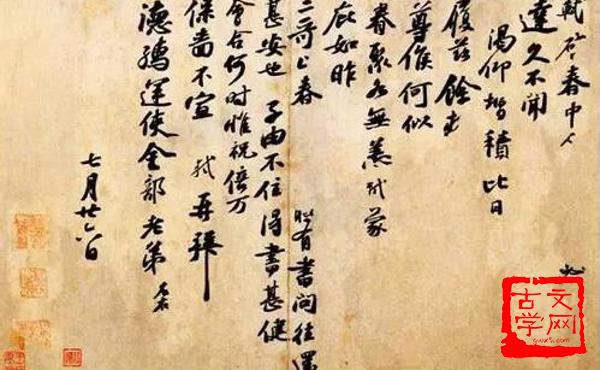 軾啓春中人
達久不聞
渴仰增積比日
履茲餘
尊候何似
眷聚各無恙軾蒙
庇如昨
二哥上春 時有書問往還
甚安也 子由不住得書甚健
會合何時惟祝倍万
保嗇不宣 軾再拜
德孺運使金部老弟 左右
七月廿六日
古文学网